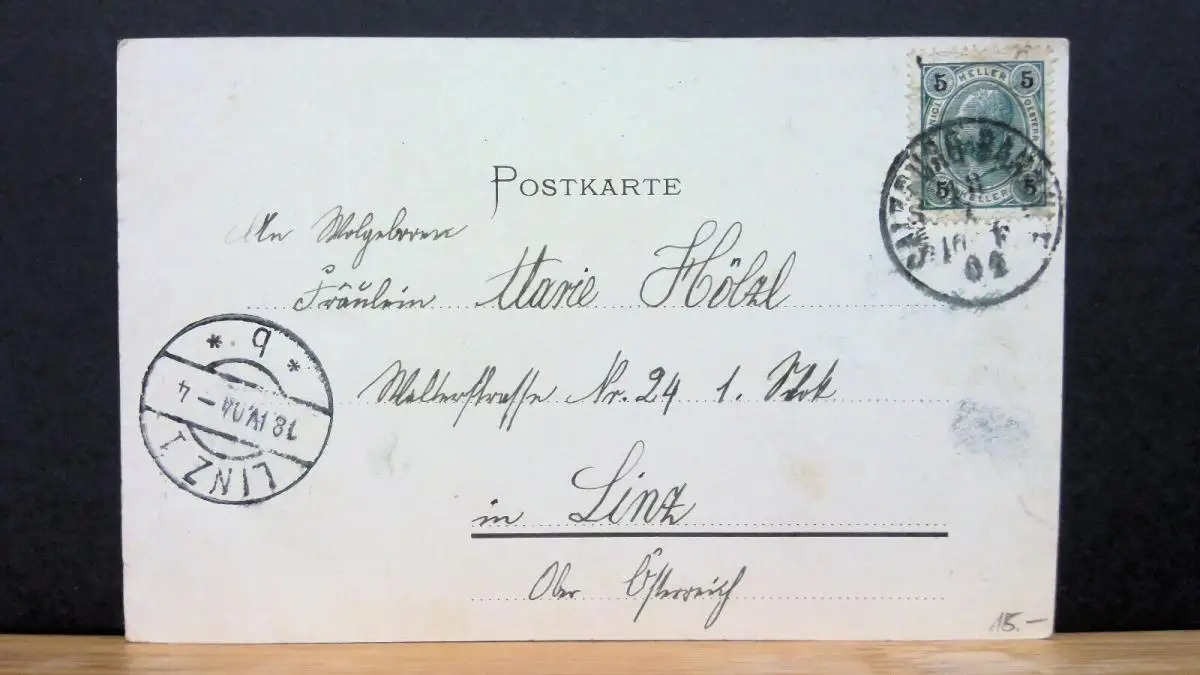 POSTKARTE
5 HELLER 5
5 HELLER 5
04
An Wolgeboren
Fräulein Marie Hölzl
Walterstrasse Nr. 24 1. Stok
in Linz
Ober Österreich
* b *
18 IV 04 – 4
LINZ 1
15.–